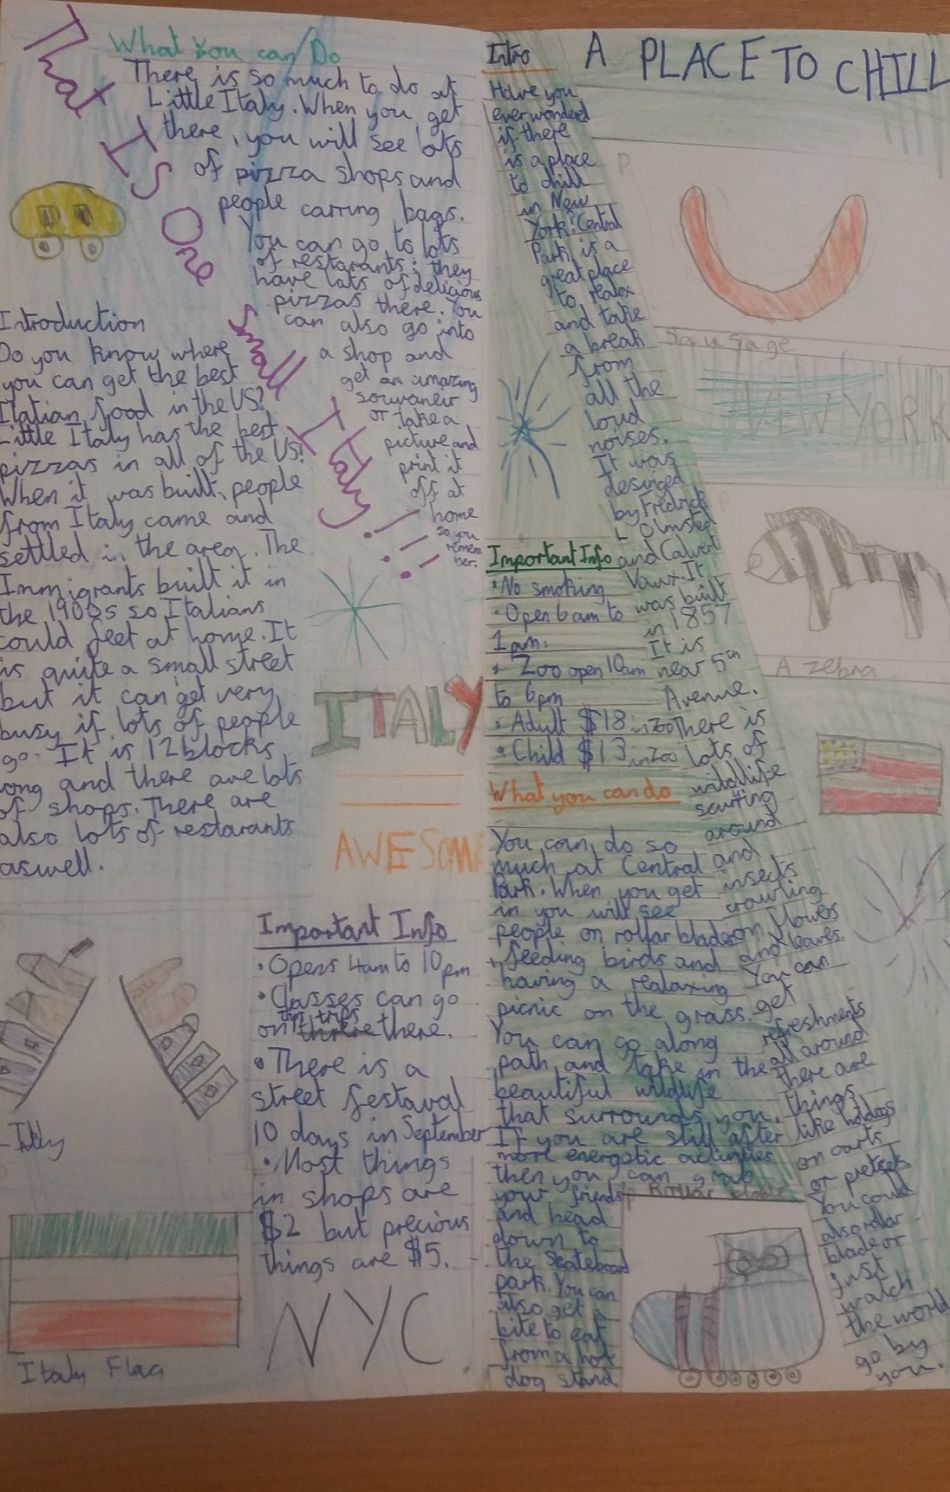 That Is One Small Italy!!!
What You can Do
There is so much to do at
Little Italy. When you get
there, you will see lots
of pizzza shops and
people carring bags.
You can go to lots
of restarants; they
have lots of delicious
pizzas there. You
can also go into
a shop and
get an amazing
souvaneir
or take a
picture and
print it
off at
home
so you
remem
ber.
Introduction
Do you know where
you can get the best
Italian food in the US?
Little Italy has the best
pizzas in all of the US!
When it was built, people
from Italy came and
settled in the area. The
Immigrants built it in
the 1900s so Italians
could feel at home. It
is quite a small street
but it can get very
busy if lots of people
go. It is 12 blocks
long and there are lots
of shops. There are
also lots of restarants
aswell.
ITALY
AWESOME
Important Info
• Opens 4am to 10pm
• Classes can go
on trips there.
• There is a
street festaval
10 days in September
• Most things
in shops are
$2 but precious
things are $5.
NYC
Italy
Italy Flag
A PLACE TO CHILL
Intro
Have you
ever wonderd
if there
is a place
to chill
in New
York? Central
Park is a
great place
to relax
and take
a break
from
all the
loud
noises.
It was
desinged
by Fredrick
L Olmsted
and Calvert
Vaux. It
was built
in 1857
It is
near 5th
Avenue.
There is
lots of
wildlife
scurting
around
and
insects
crawling
on flowers
and leaves.
You can
get
refreshments
all around
there are
things
like hotdogs
on carts
or pretzels
You could
also rollar
blade or
just
watch
the world
go by
you.
Important Info
• No smoking
• Open 6am to
1am.
• Zoo open 10am
to 6pm
• Adult $18 in zoo
• Child $13 in zoo
What you can do
You can do so
much at Central
Park. When you get
in you will see
people on rollar blades
feeding birds and
having a realaxing
picnic on the grass.
You can go along
path and take in the
beautiful wildlife
that surrounds you.
If you are still after
more energetic activities
then you can grab
your friends
and head
down to
the Skateboad
park. You can
also get a
bite to eat
from a hot
dog stand
Sausage
NEW YORK
A zebra
Rollar blade